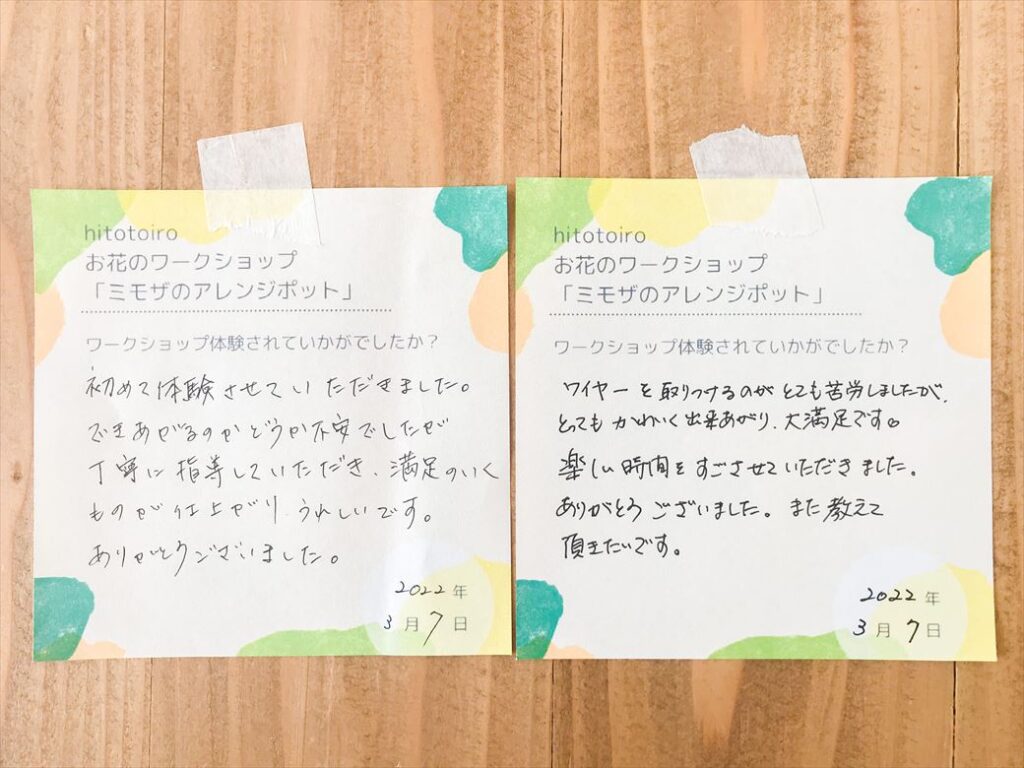 hitotoiro
お花のワークショップ
「ミモザのアレンジポット」
ワークショップ体験されていかがでしたか?
初めて体験させていただきました。
できあがるのかどうか不安でしたが
丁寧に指導していただき、満足のいく
ものが仕上がり、うれしいです。
ありがとうございました。
2022年
3月7日
hitotoiro
お花のワークショップ
「ミモザのアレンジポット」
ワークショップ体験されていかがでしたか?
ワイヤーを取りつけるのがとても苦労しましたが、
とってもかわいく出来あがり、大満足です。
楽しい時間をすごさせていただきました。
ありがとうございました。また教えて
頂きたいです。
2022年
3月7日